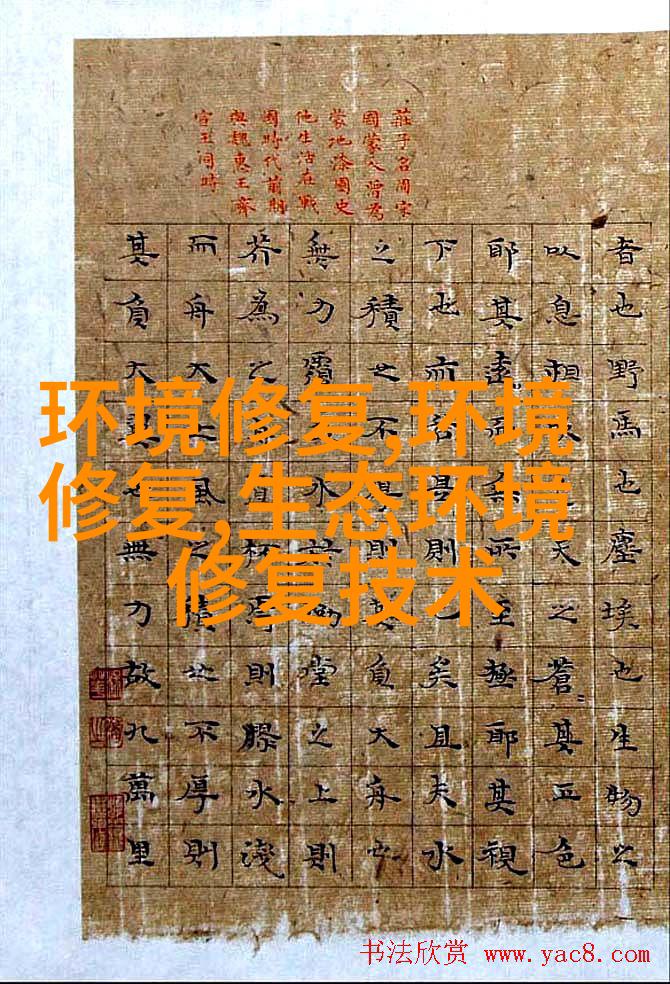 莊子名周宋
國蒙人曾為
蒙地漆園史
他生活在戰
國時代前期
與魏惠王齊
宣王同時
者也野馬也塵埃也生物之
以息相吹天之蒼〻其正色
耶其遠而無所至極耶其視
下也亦若是則已矣且夫水
之積也不厚則其負大舟也
無力覆水於坳堂之上則
芥為之置杯焉則膠水淺
而舟大也風之積也不厚則
其負大翼也無力故九萬里
环境修复,环境
修复,生态环境
修复技术
书法欣赏 www.yac8.com